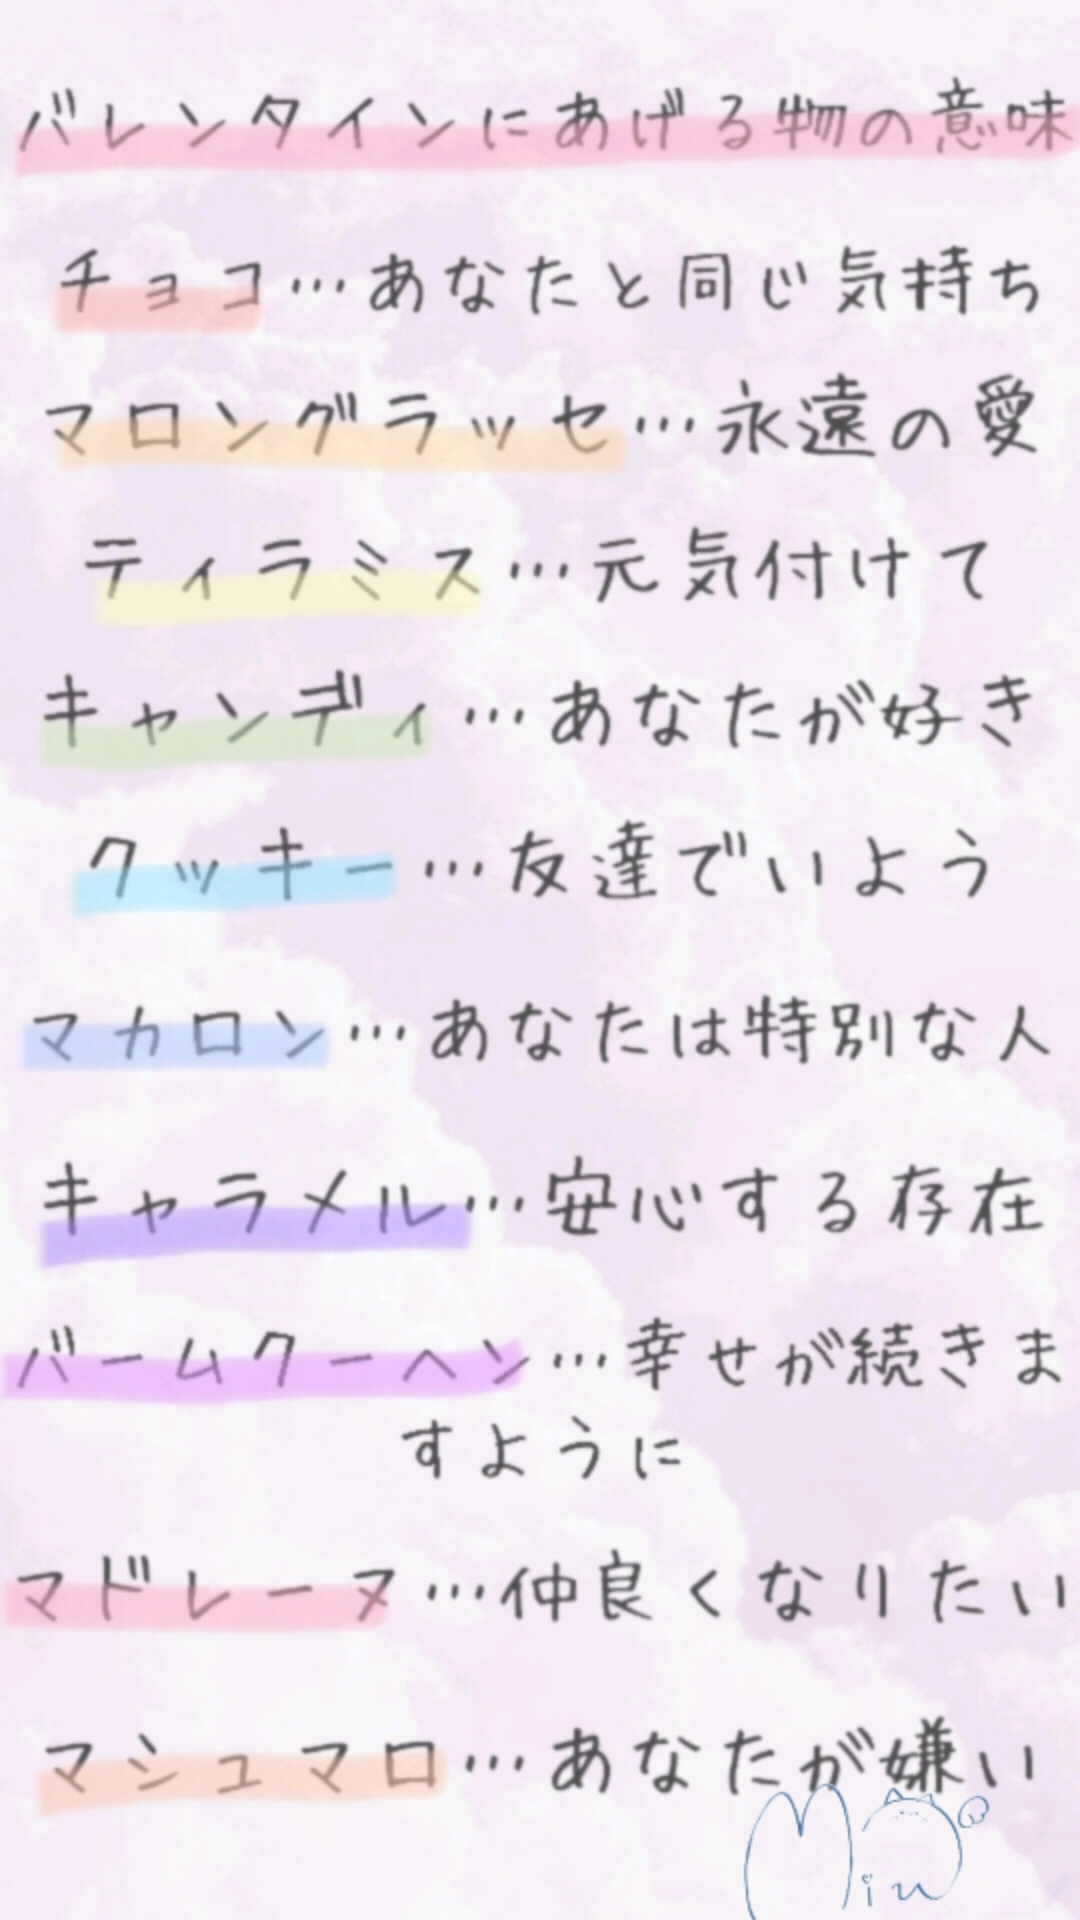 バレンタインにあげる物の意味
チョコ…あなたと同じ気持ち
マロングラッセ…永遠の愛
ティラミス…元気付けて
キャンディ…あなたが好き
クッキー…友達でいよう
マカロン…あなたは特別な人
キャラメル…安心する存在
バームクーヘン…幸せが続きま
すように
マドレーヌ…仲良くなりたい
マシュマロ…あなたが嫌い
Miu